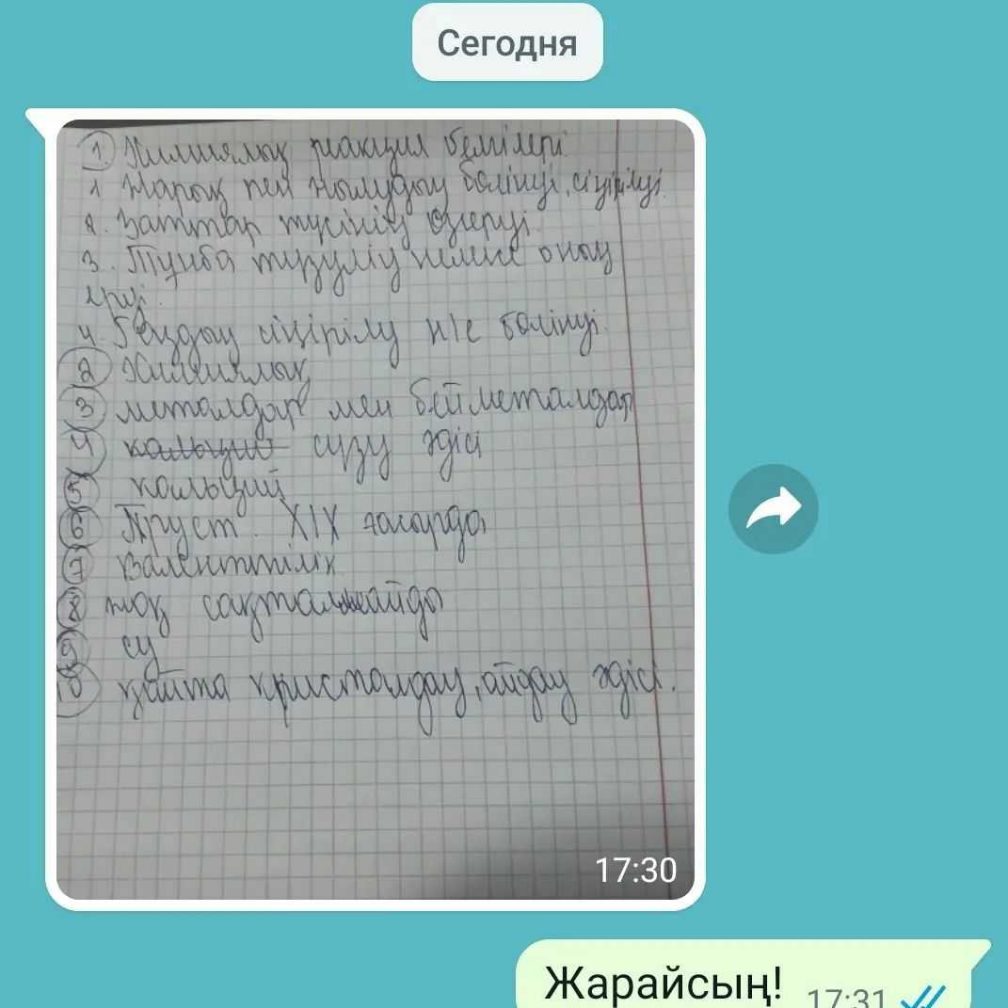 Сегодня
1 Химиялық реакция белгілері
1 Жарық пен жылудың бөлінуі, сіңірілуі.
2. Заттар түсінің өзгеруі.
3. Тұнба түзулің немесе оның
еруі.
4. Газдың сіңірілу н/е бөлінуі.
2 Химиялық
3 металдар мен бейметалдар
4 кальций сүзу әдісі
5 кальций
6 Пруст. XIX ғасырда
7 валенттілік
8 жоқ сақталмайды
9 су
10 қайта кристалдау, айдау әдісі.
17:30
Жарайсың! 17:31